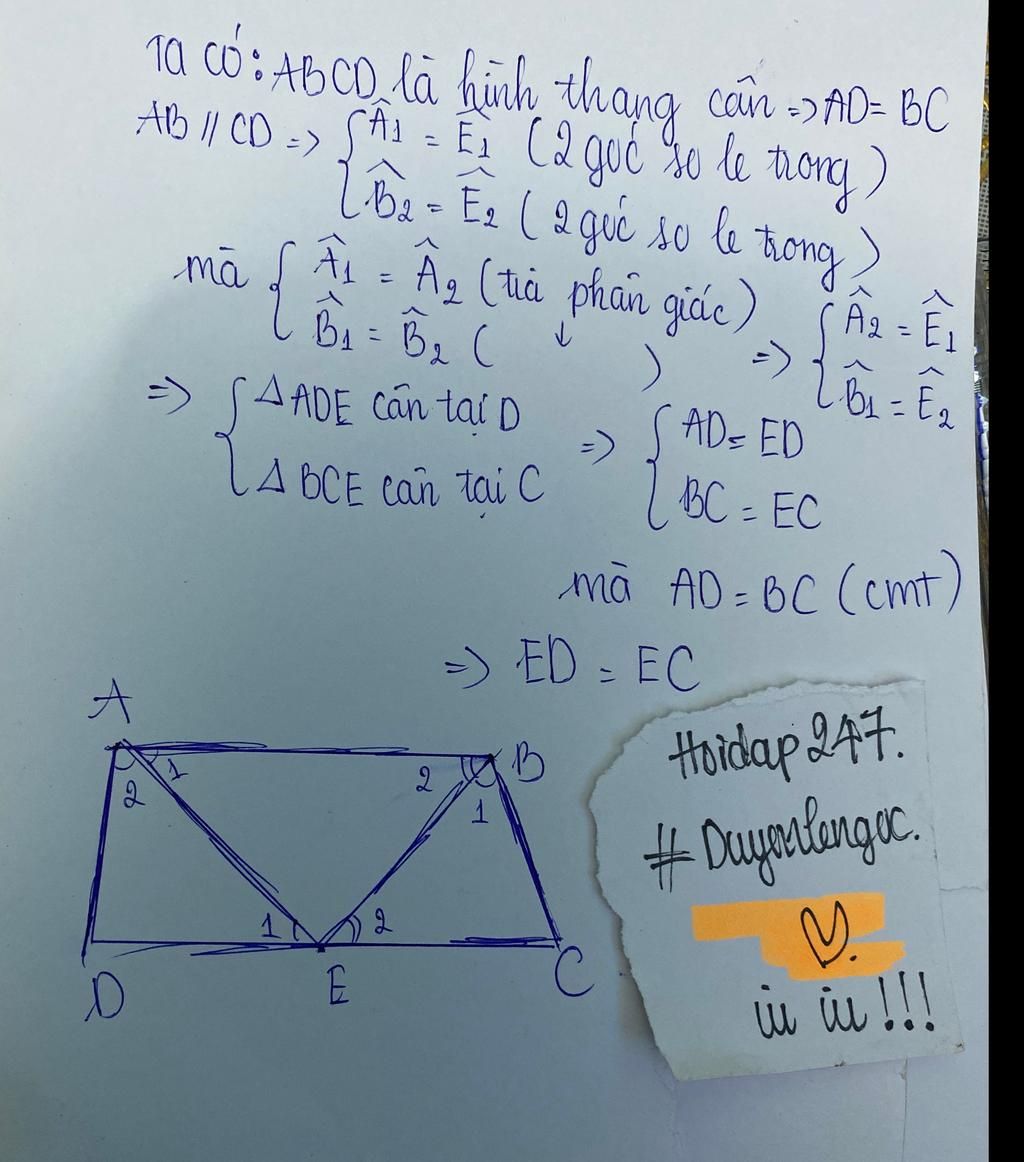 Ta có: ABCD là hình thang cân => AD = BC
AB // CD => { Â1 = Ê1 (2 góc so le trong)
B̂2 = Ê2 (2 góc so le trong)
mà { Â1 = Â2 (tia phân giác)
B̂1 = B̂2 ( ↓ )
=> { Â2 = Ê1
B̂1 = Ê2
=> { Δ ADE cân tại D
Δ BCE cân tại C
=> { AD = ED
BC = EC
mà AD = BC (cmt)
=> ED = EC
A
B
1
2
2
1
1
2
D
E
C
Hoidap 247.
# Duyenlengoc.
iu iu !!!